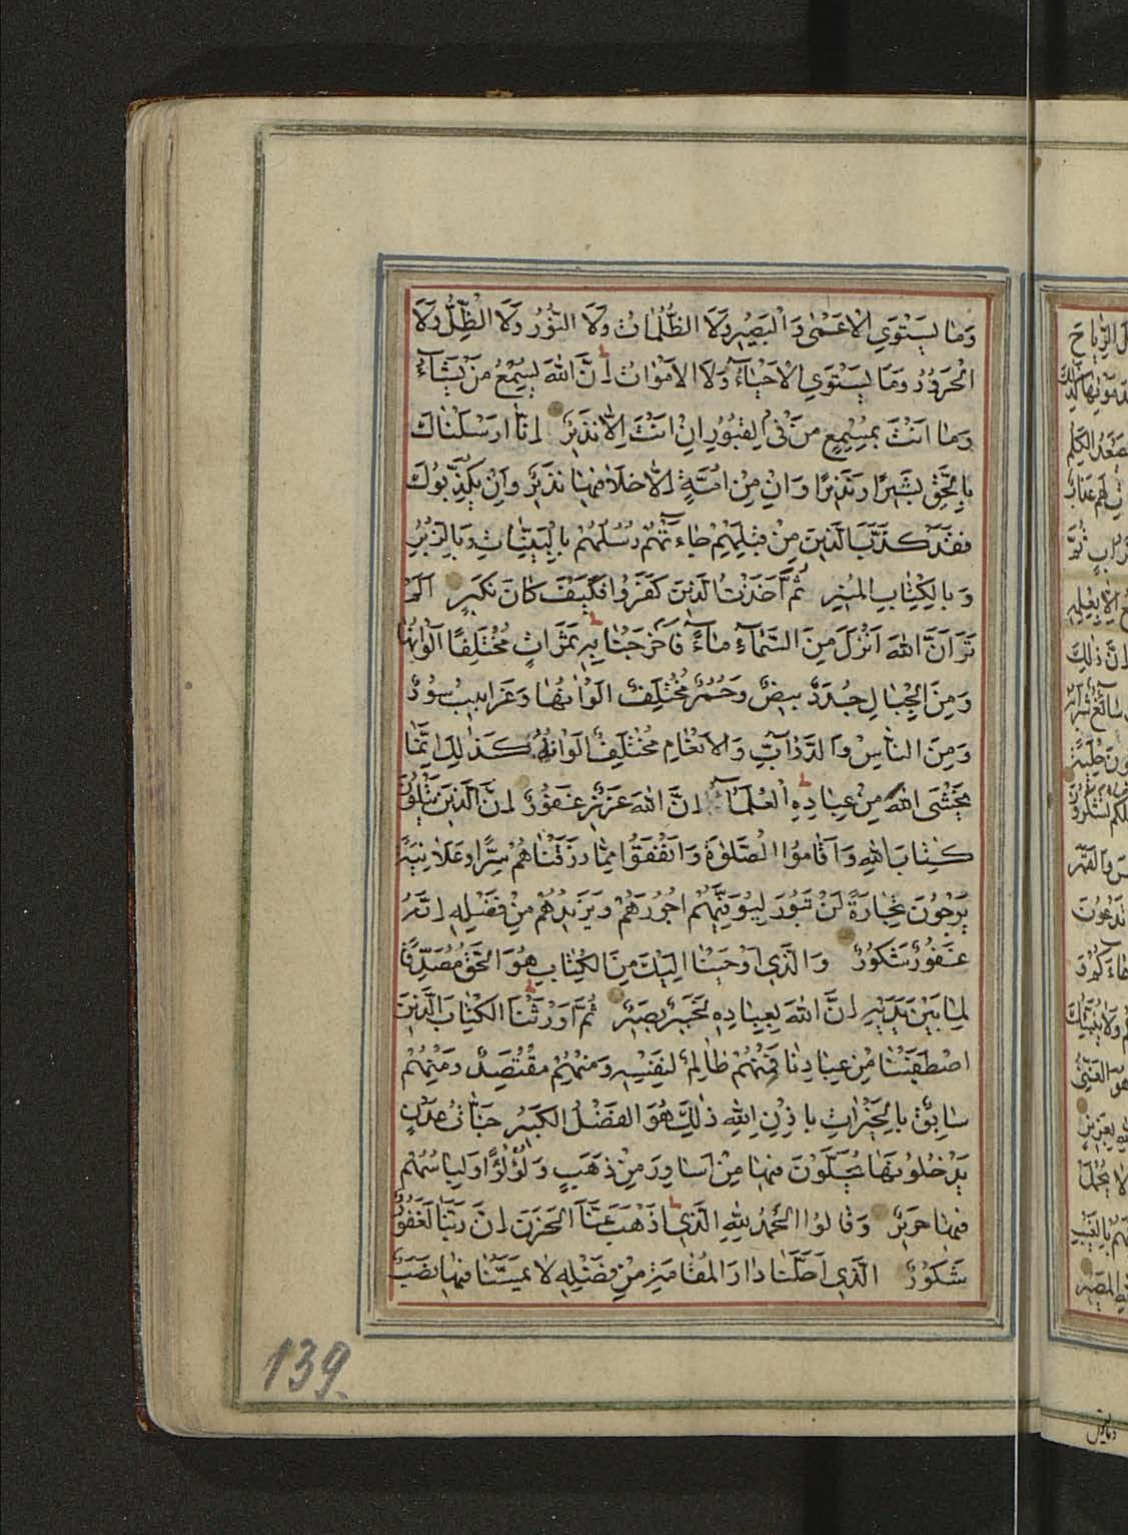 وَمَا يَسْتَوِي الْاَعْمٰى وَالْبَصِيرُ وَلَا الظُّلُمَاتُ وَلَا النُّورُ وَلَا الظِّلُّ وَلَا
الْحَرُورُ وَمَا يَسْتَوِي الْاَحْيَاءُ وَلَا الْاَمْوَاتُ اِنَّ اللّٰهَ يُسْمِعُ مَنْ يَشَاءُ
وَمَا اَنْتَ بِمُسْمِعٍ مَنْ فِي الْقُبُورِ اِنْ اَنْتَ اِلَّا نَذِيرٌ اِنَّا اَرْسَلْنَاكَ
بِالْحَقِّ بَشِيرًا وَنَذِيرًا وَاِنْ مِنْ اُمَّةٍ اِلَّا خَلَا فِيهَا نَذِيرٌ وَاِنْ يُكَذِّبُوكَ
فَقَدْ كَذَّبَ الَّذِينَ مِنْ قَبْلِهِمْ جَاءَتْهُمْ رُسُلُهُمْ بِالْبَيِّنَاتِ وَبِالزُّبُرِ
وَبِالْكِتَابِ الْمُنِيرِ ثُمَّ اَخَذْتُ الَّذِينَ كَفَرُوا فَكَيْفَ كَانَ نَكِيرِ اَلَمْ
تَرَ اَنَّ اللّٰهَ اَنْزَلَ مِنَ السَّمَاءِ مَاءً فَاَخْرَجْنَا بِهِ ثَمَرَاتٍ مُخْتَلِفًا اَلْوَانُهَا
وَمِنَ الْجِبَالِ جُدَدٌ بِيضٌ وَحُمْرٌ مُخْتَلِفٌ اَلْوَانُهَا وَغَرَابِيبُ سُودٌ
وَمِنَ النَّاسِ وَالدَّوَابِّ وَالْاَنْعَامِ مُخْتَلِفٌ اَلْوَانُهُ كَذٰلِكَ اِنَّمَا
يَخْشَى اللّٰهَ مِنْ عِبَادِهِ الْعُلَمَاءُ اِنَّ اللّٰهَ عَزِيزٌ غَفُورٌ اِنَّ الَّذِينَ يَتْلُونَ
كِتَابَ اللّٰهِ وَاَقَامُوا الصَّلٰوةَ وَاَنْفَقُوا مِمَّا رَزَقْنَاهُمْ سِرًّا وَعَلَانِيَةً
يَرْجُونَ تِجَارَةً لَنْ تَبُورَ لِيُوَفِّيَهُمْ اُجُورَهُمْ وَيَزِيدُهُمْ مِنْ فَضْلِهِ اِنَّهُ
غَفُورٌ شَكُورٌ وَالَّذِي اَوْحَيْنَا اِلَيْكَ مِنَ الْكِتَابِ هُوَ الْحَقُّ مُصَدِّقًا
لِمَا بَيْنَ يَدَيْهِ اِنَّ اللّٰهَ بِعِبَادِهِ لَخَبِيرٌ بَصِيرٌ ثُمَّ اَوْرَثْنَا الْكِتَابَ الَّذِينَ
اصْطَفَيْنَا مِنْ عِبَادِنَا فَمِنْهُمْ ظَالِمٌ لِنَفْسِهِ وَمِنْهُمْ مُقْتَصِدٌ وَمِنْهُمْ
سَابِقٌ بِالْخَيْرَاتِ بِاِذْنِ اللّٰهِ ذٰلِكَ هُوَ الْفَضْلُ الْكَبِيرُ جَنَّاتُ عَدْنٍ
يَدْخُلُونَهَا يُحَلَّوْنَ فِيهَا مِنْ اَسَاوِرَ مِنْ ذَهَبٍ وَلُؤْلُؤًا وَلِبَاسُهُمْ
فِيهَا حَرِيرٌ وَقَالُوا الْحَمْدُ لِلّٰهِ الَّذِي اَذْهَبَ عَنَّا الْحَزَنَ اِنَّ رَبَّنَا لَغَفُورٌ
شَكُورٌ الَّذِي اَحَلَّنَا دَارَ الْمُقَامَةِ مِنْ فَضْلِهِ لَا يَمَسُّنَا فِيهَا نَصَبٌ
139.